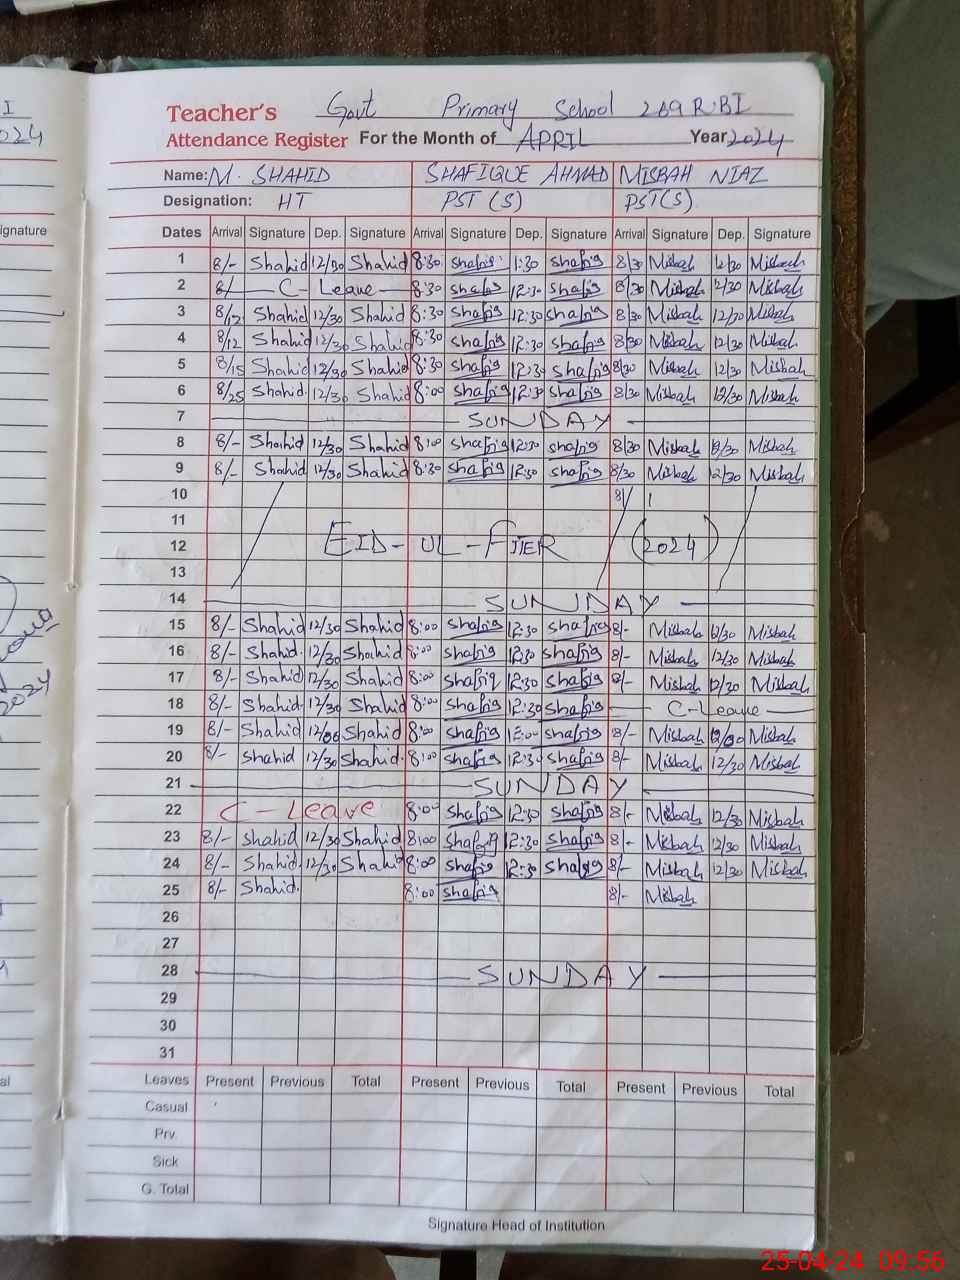 I
2024
gnature
2024
al
Teacher's Govt Primary School 269 R.B I
Attendance Register For the Month of APRIL Year 2024
Name: M. SHAHID SHAFIQUE AHMAD MISBAH NIAZ
Designation: HT PST (S) PST(S)
Dates Arrival Signature Dep. Signature Arrival Signature Dep. Signature Arrival Signature Dep. Signature
1 8/- Shahid 12/30 Shahid 8:30 Shafiq 1:30 Shafiq 8/30 Misbah 12/30 Misbah
2 8/ C - Leave 8:30 Shafiq 12:30 Shafiq 8/30 Misbah 12/30 Misbah
3 Shahid 12/30 Shahid 8:30 Shafiq 12:30 Shafiq 8/30 Misbah 12/30 Misbah
4 8/12 Shahid 12/30 Shahid 8:30 Shafiq 12:30 Shafiq 8/30 Misbah 12/30 Misbah
5 8/15 Shahid 12/30 Shahid 8:30 Shafiq 12:30 Shafiq 8/30 Misbah 12/30 Misbah
6 8/25 Shahid. 12/30 Shahid 8:00 Shafiq 12:30 Shafiq 8/30 Misbah 12/30 Misbah
7 SUNDAY
8 8/- Shahid 12/30 Shahid 8:00 Shafiq 12:30 Shafiq 8/30 Misbah 12/30 Misbah
9 8/- Shahid 12/30 Shahid 8:30 Shafiq 12:30 Shafiq 8/30 Misbah 12/30 Misbah
10 8/
11
12 EID-UL-FITER (2024)
13
14 SUNDAY
15 8/- Shahid 12/30 Shahid 8:00 Shafiq 12:30 Shafiq 8/- Misbah 12/30 Misbah
16 8/- Shahid. 12/30 Shahid 8:00 Shafiq 12:30 Shafiq 8/- Misbah 12/30 Misbah
17 8/- Shahid 12/30 Shahid 8:00 Shafiq 12:30 Shafiq 8/- Misbah 12/30 Misbah
18 8/- Shahid. 12/30 Shahid 8:00 Shafiq 12:30 Shafiq C-Leave
19 8/- Shahid Shahid 8:00 Shafiq 12:00 Shafiq 8/- Misbah Misbah
20 8/- Shahid 12/30 Shahid. 8:00 Shafiq 12:30 Shafiq 8/- Misbah 12/30 Misbah
21 SUNDAY
22 C - Leave 8:00 Shafiq 12:30 Shafiq 8/- Misbah 12/30 Misbah
23 8/- Shahid 12/30 Shahid 8:00 Shafiq 12:30 Shafiq 8/- Misbah 12/30 Misbah
24 8/- Shahid. 12/30 Shahid 8:00 Shafiq 12:30 Shafiq 8/- Misbah 12/30 Misbah
25 8/- Shahid. 8:00 Shafiq 8/- Misbah
26
27
28 SUNDAY
29
30
31
Leaves Present Previous Total Present Previous Total Present Previous Total
Casual
Prv.
Sick
G. Total
Signature Head of Institution
25-04-24 09:56